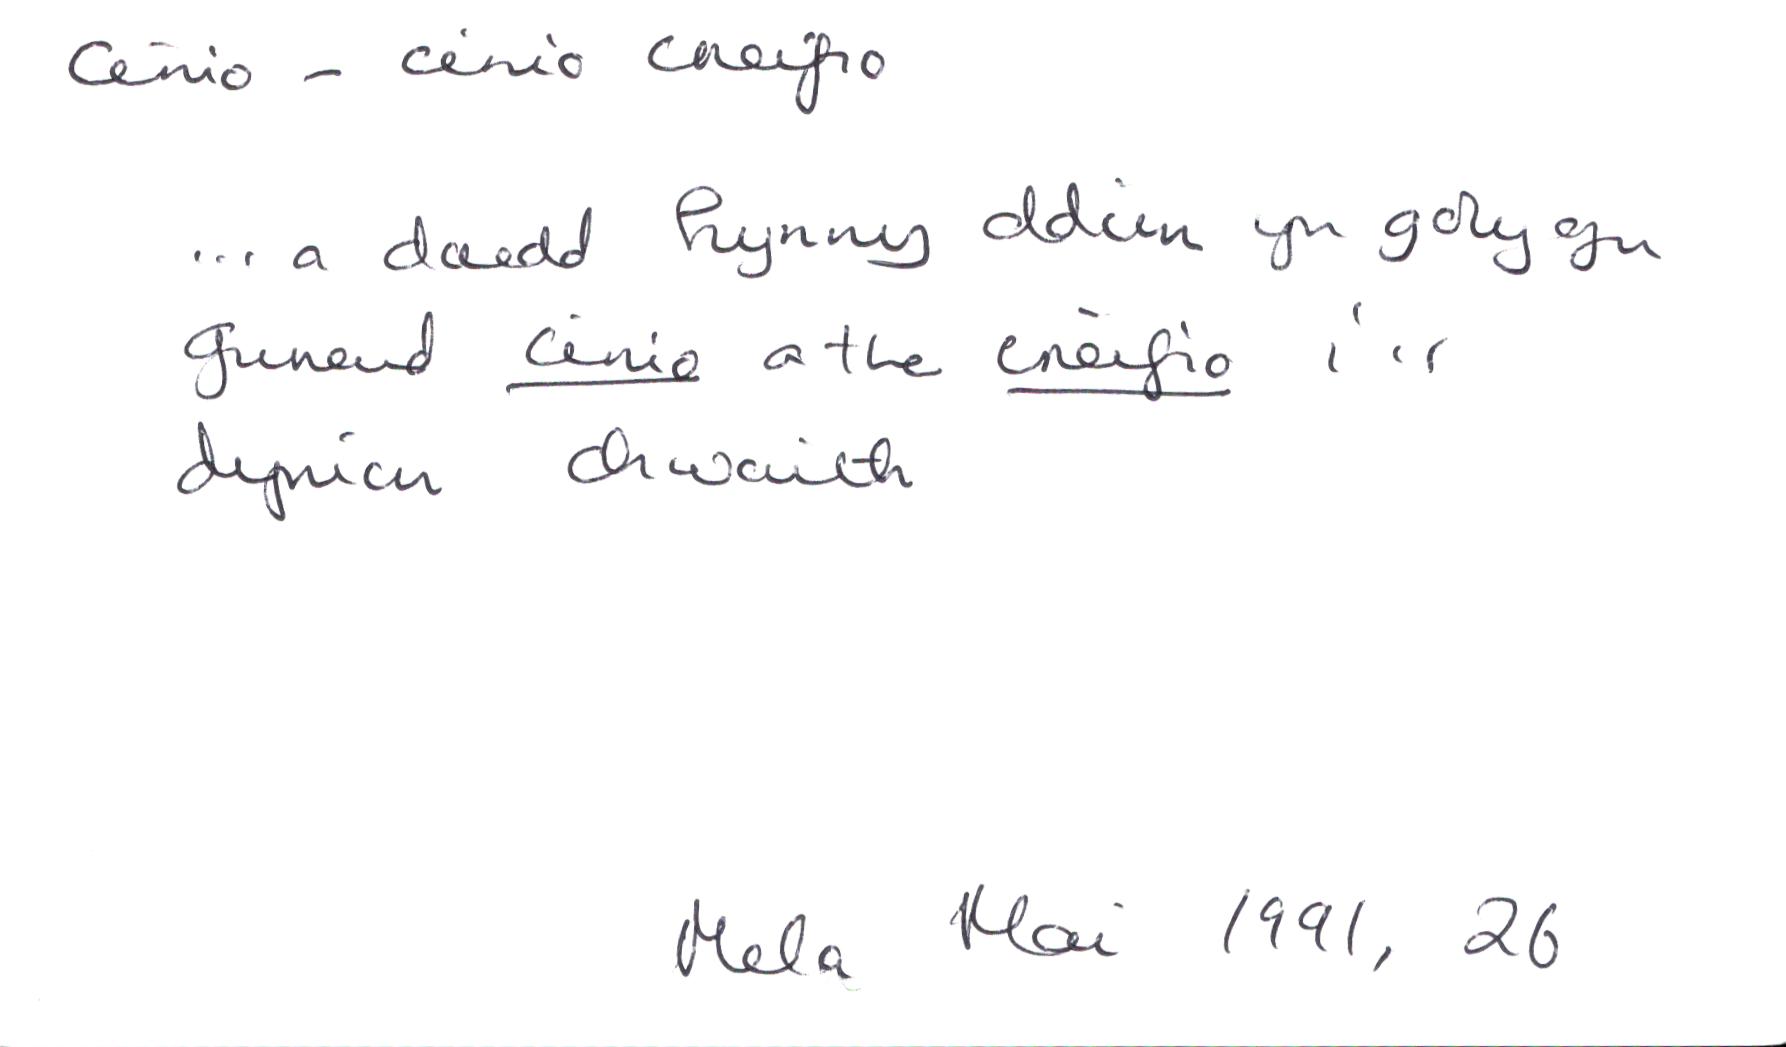 Cinio - cinio cneifio
... a doedd hynny ddim yn golygu
gwneud cinio a the cneifio i'r
dynion chwaith
Mela Mai 1991, 26